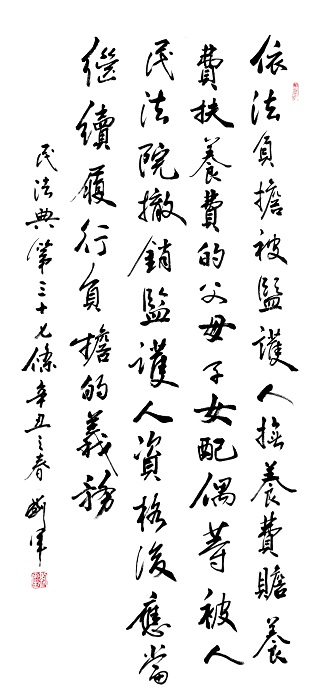 依法負擔被監護人撫養費贍養
費扶養費的父母子女配偶等被人
民法院撤銷監護人資格後應當
繼續履行負擔的義務
民法典第三十七條辛丑之春 軍